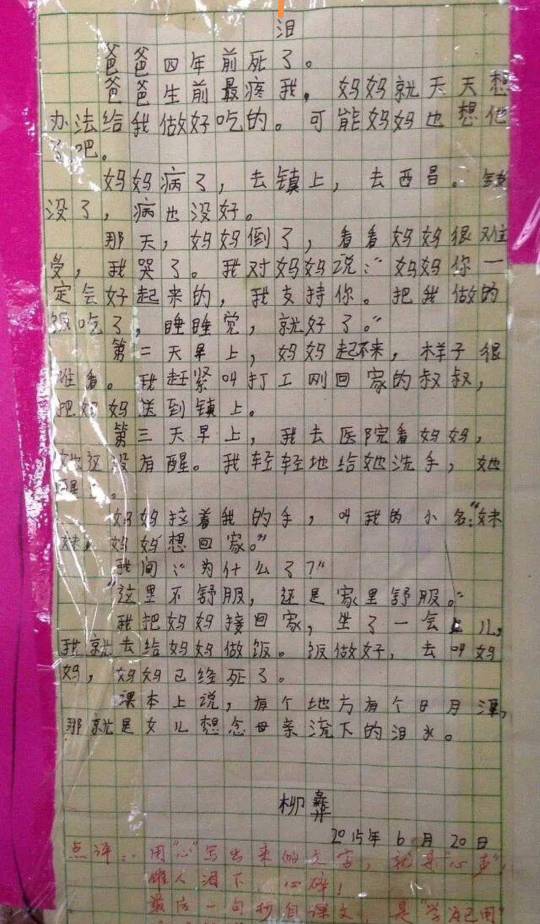 泪
爸爸四年前死了。
爸爸生前最疼我，妈妈就天天想
办法给我做好吃的。可能妈妈也想他
了吧。
妈妈病了，去镇上，去西昌。钱
没了，病也没好。
那天，妈妈倒了，看看妈妈很难
受，我哭了。我对妈妈说：“妈妈你一
定会好起来的，我支持你。把我做的
饭吃了，睡睡觉，就好了。”
第二天早上，妈妈起不来，样子很
难看。我赶紧叫打工刚回家的叔叔，
把妈妈送到镇上。
第三天早上，我去医院看妈妈，
她还没有醒。我轻轻地给她洗手，她
醒了。
妈妈拉着我的手，叫我的小名：“妹
妹，妈妈想回家。”
我问：“为什么了？”
“这里不舒服，还是家里舒服。”
我把妈妈接回家，坐了一会儿，
我就去给妈妈做饭。饭做好，去叫妈
妈，妈妈已经死了。
课本上说，有个地方有个日月潭，
那就是女儿想念母亲流下的泪水。
柳彝
2015年6月20日
点评：用“心”写出来的文字，就是“心声”，
催人泪下 心碎！
最后一句抄自课文 是“学为己用”